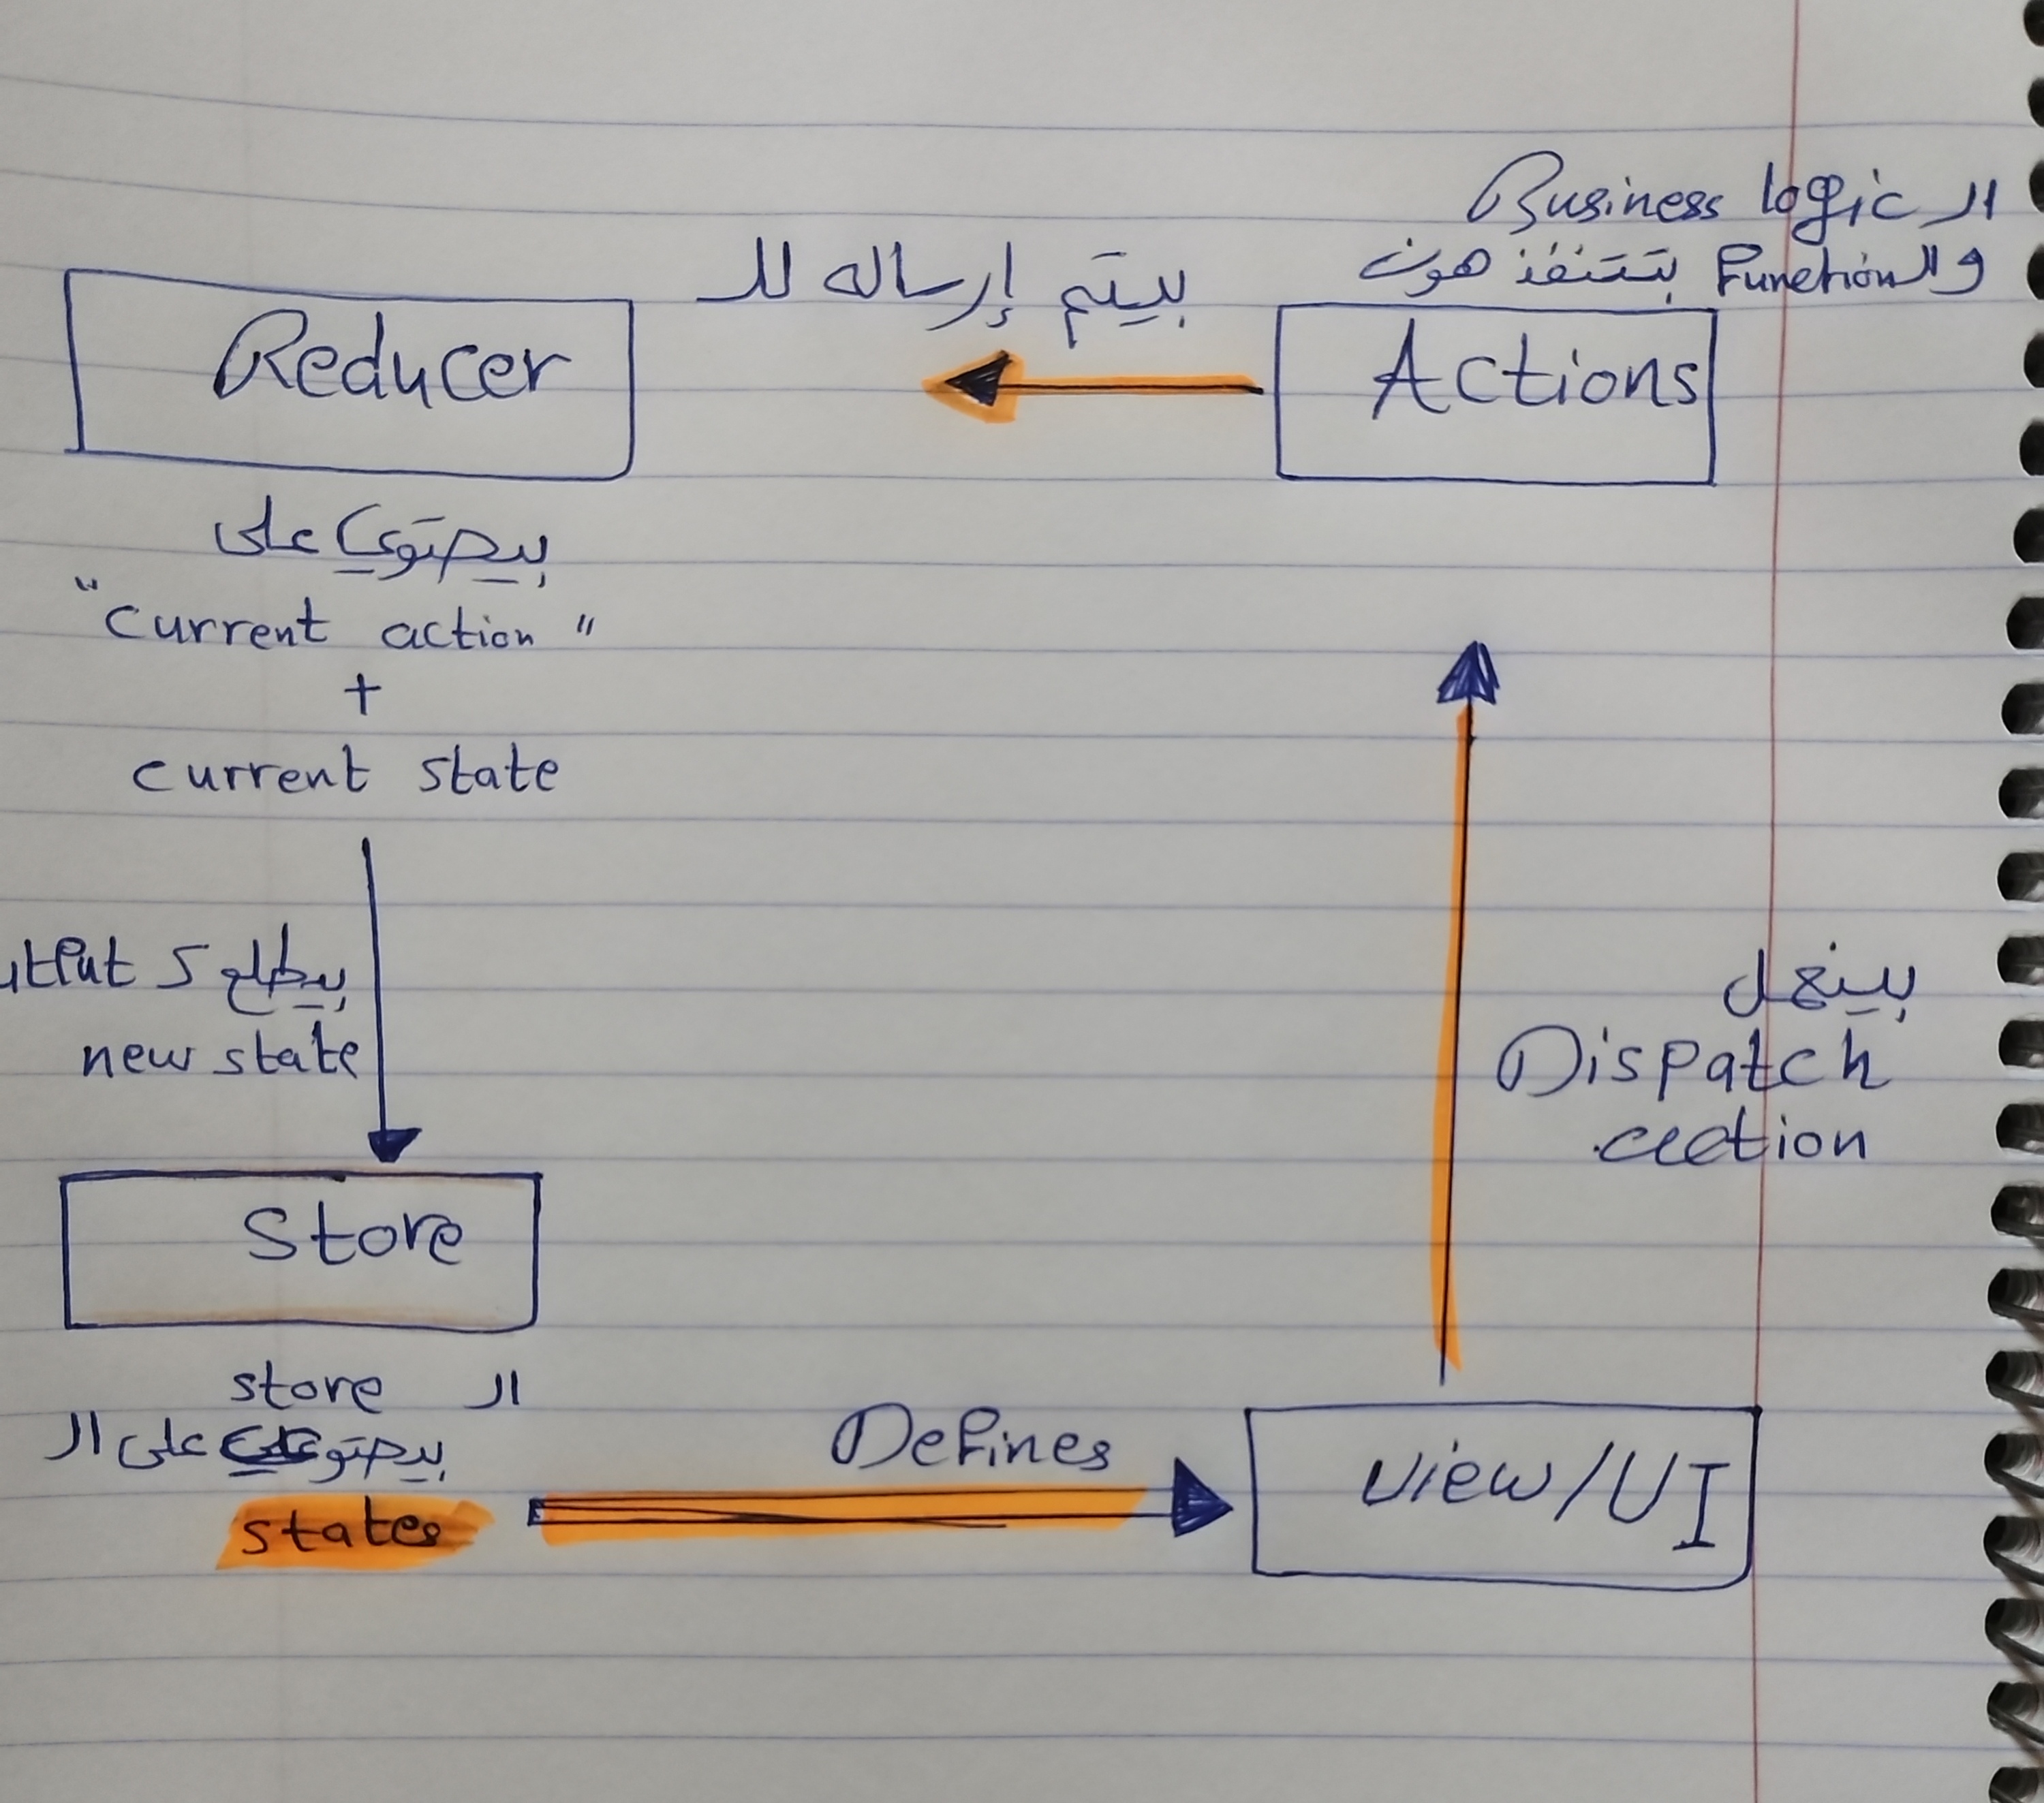 ال Business logic
و ال Function بتتنفذ هون
بيتم إرساله لل
Actions
Reducer
بيحتوي على
"current action"
+
current state
بيطلع
new state
Store
ال store
بيحتوي على ال
states
Defines
View/UI
Dispatch
action